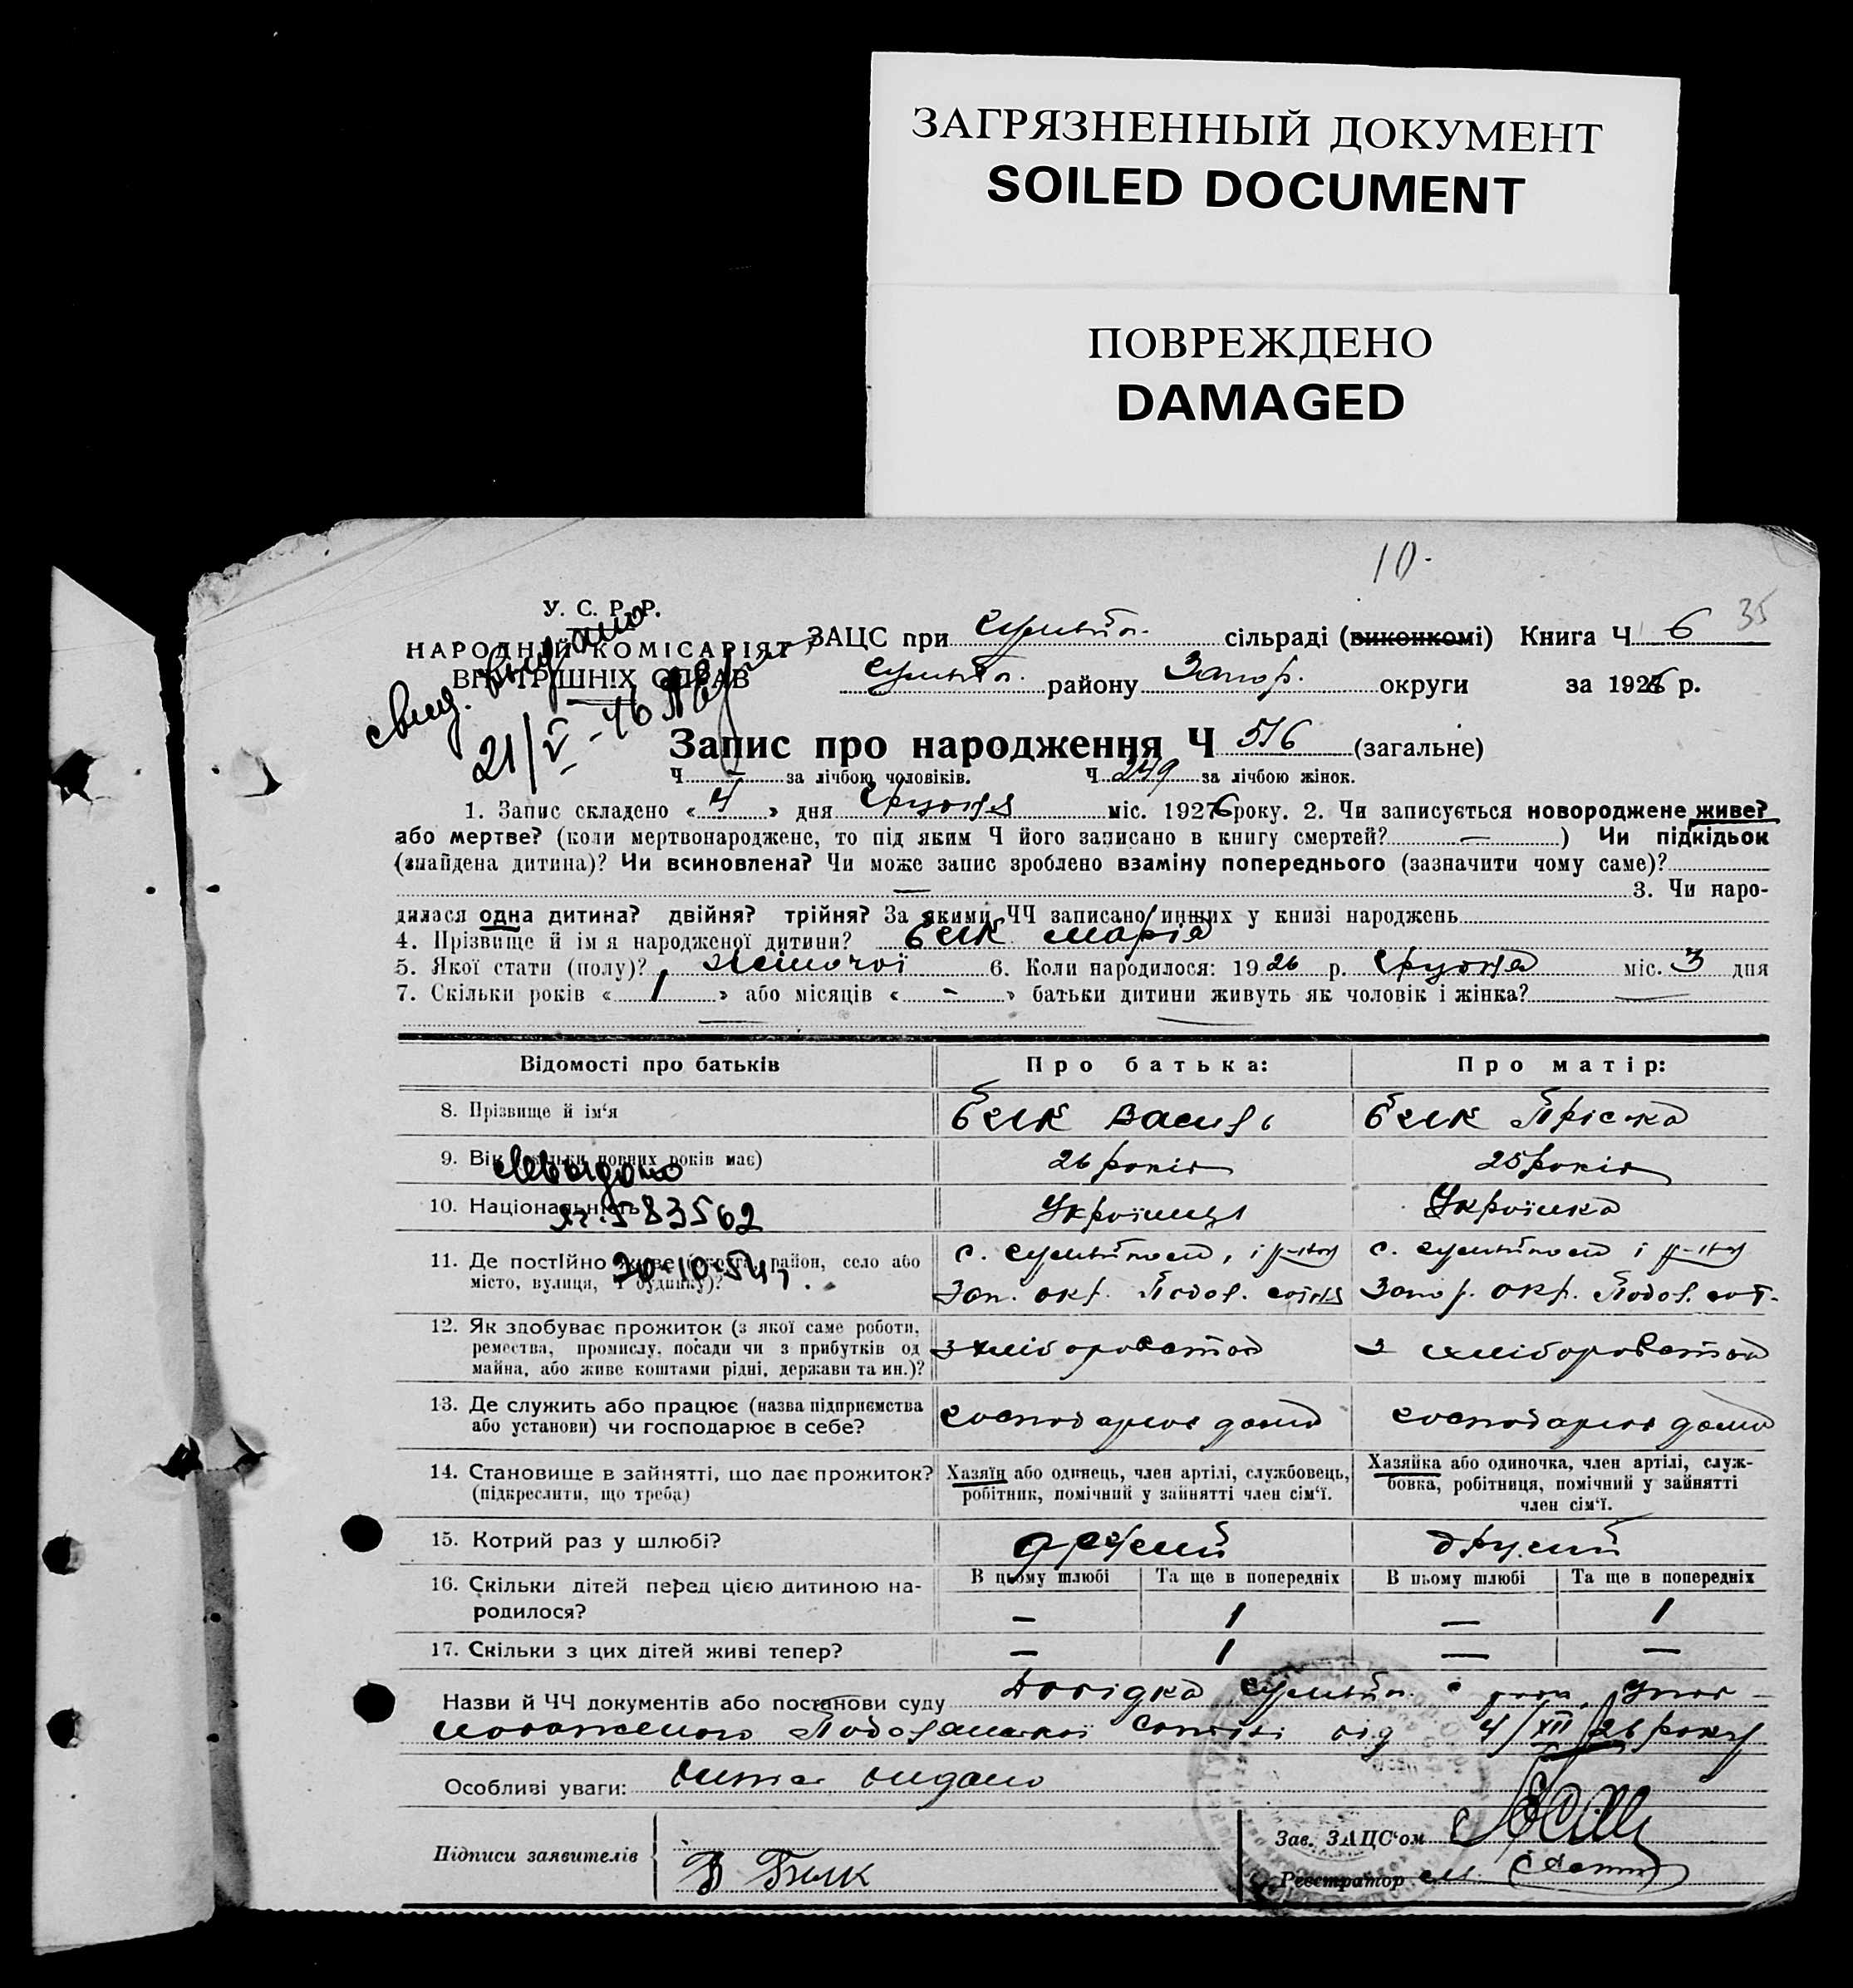 ЗАГРЯЗНЕННЫЙ ДОКУМЕНТ
SOILED DOCUMENT
ПОВРЕЖДЕНО
DAMAGED
10.
35
У. С. Р. Р.
НАРОДНІЙ КОМІСАРІЯТ
ВНУТРІШНІХ СПРАВ
свид. выдано
21/V-46
ЗАЦС при сільраді (виконкомі) Книга Ч 6
району Запор. округи за 1926 р.
Запис про народження Ч 516 (загальне)
Ч - за лічбою чоловіків. Ч 249 за лічбою жінок.
1. Запис складено « 4 » дня Грудня міс. 1926 року. 2. Чи записується новороджене живе?
або мертве? (коли мертвонароджене, то під яким Ч його записано в книгу смертей? — ) Чи підкідьок
(знайдена дитина)? Чи всиновлена? Чи може запис зроблено взаміну попереднього (зазначити чому саме)?
— 3. Чи наро-
дилася одна дитина? двійня? трійня? За якими ЧЧ записано инших у книзі народжень
4. Прізвище й ім я народженої дитини? Білк Марія
5. Якої стати (полу)? жіночої 6. Коли народилося: 1926 р. Грудня міс. 3 дня
7. Скільки років « 1 » або місяців « - » батьки дитини живуть як чоловік і жінка? —
Відомості про батьків Про батька: Про матір:
8. Прізвище й ім‘я Білк Василь Білк Пріська
9. Вік (скільки повних років має) 26 років 25 років
Свід. выдано
10. Національність Українець Українка
583562
11. Де постійно живе (округа, район, село або с. і р-ну с. і р-ну
місто, вулиця, Ч будинку)? Зап. окр. Подол. сотня Запор. окр. Подол. сот.
20-10-54
12. Як здобуває прожиток (з якої саме роботи,
ремества, промислу, посади чи з прибутків од з хліборобства з хліборобства
майна, або живе коштами рідні, держави та ин.)?
13. Де служить або працює (назва підприємства господарює дома господарює дома
або установи) чи господарює в себе?
14. Становище в зайнятті, що дає прожиток? Хазяїн або одинець, член артілі, службовець, Хазяйка або одиночка, член артілі, служ-
(підкреслити, що треба) робітник, помічний у зайнятті член сім‘ї. бовка, робітниця, помічний у зайнятті
член сім‘ї.
15. Котрий раз у шлюбі? другий другий
16. Скільки дітей перед цією дитиною на- В цьому шлюбі Та ще в попередніх В цьому шлюбі Та ще в попередніх
родилося? — 1 — 1
17. Скільки з цих дітей живі тепер? — 1 — —
Назви й ЧЧ документів або постанови суду Довідка упов-
новаженого Подолянської сотні від 4/XII 26 року
Особливі уваги: видано
Підписи заявителів В Білк
Зав. ЗАЦС‘ом
Реєстратор